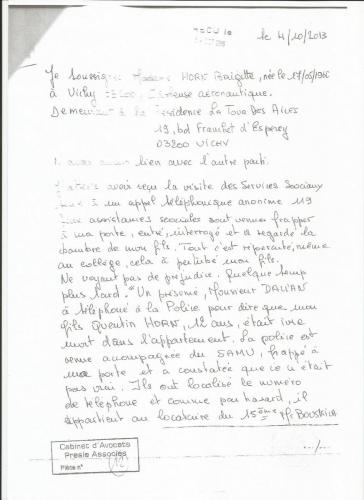 le 4/10/2013
Je soussignée Madame HORN Brigitte, née le 17/05/1966
à Vichy
Demeurant à la Résidence La Tour Des Ailes
19, bd Franchet d'Esperey
03200 VICHY
lien avec l'autre parti.
avoir reçu la visite des Services Sociaux
à un appel téléphonique anonyme 119
assistantes sociales sont venues frapper
à ma porte, entré, interrogé et regardé la
chambre de mon fils. Tout c'est répercuté, même
au collège, cela à perturbé mon fils.
Ne voyant pas de préjudice. Quelque temp
plus tard. "Un présumé, Monsieur
à téléphoné à la Police pour dire que mon
fils Quentin HORN, 12 ans, était ivre
mort dans l'appartement. La police est
venue accompagnée du SAMU, frappé à
porte et a constatée que ce n'était
pas vrai. Ils ont localisé le numéro
de téléphone et comme par hasard, il
appartient au locataire du 15ème
.../...
Cabinet d'Avocats
Presle Associés
Pièce n° 12